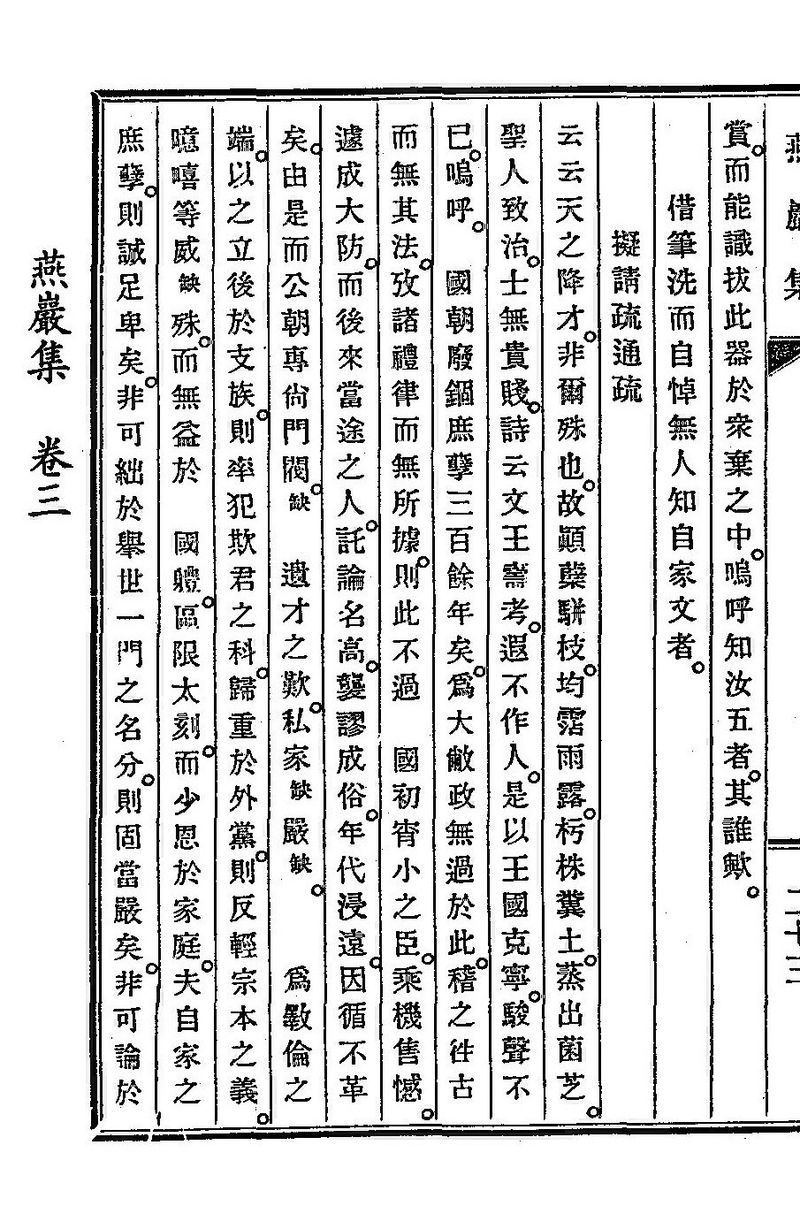 燕巖集
二十三
賞。而能識拔此器於衆棄之中。嗚呼知汝五者。其誰歟。
借筆洗而自悼無人知自家文者。
擬請疏通疏
云云天之降才。非爾殊也。故顚蘖騈枝。均霑雨露。朽株糞土。蒸出菌芝。
聖人致治。士無貴賤。詩云文王壽考。遐不作人。是以王國克寧。駿聲不
已。嗚呼。 國朝廢錮庶孼三百餘年矣。爲大敝政無過於此。稽之往古
而無其法。攷諸禮律而無所據。則此不過 國初宵小之臣。乘機售憾。
遽成大防。而後來當途之人。託論名高。襲謬成俗。年代浸遠。因循不革
矣。由是而公朝專尙門閥。缺 遺才之歎。私家缺嚴缺。 爲斁倫之
端。以之立後於支族。則率犯欺君之科。歸重於外黨。則反輕宗本之義。
噫嘻等威缺殊。而無益於 國體。區限太刻。而少恩於家庭。夫自家之
庶孼。則誠足卑矣。非可絀於擧世一門之名分。則固當嚴矣。非可論於
燕巖集 卷三